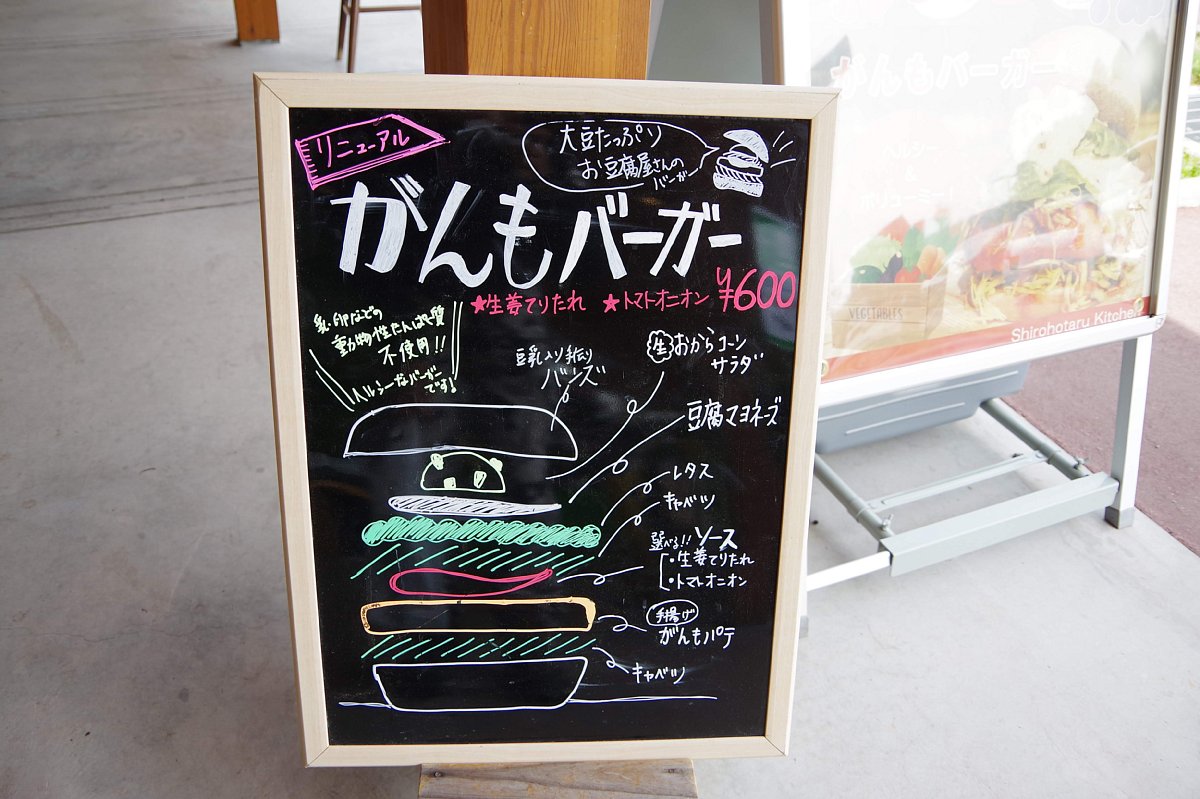 リニューアル
大豆たっぷり
お豆腐屋さんの
バーガー
がんもバーガー
★生姜てりたれ ★トマトオニオン ¥600
乳・卵などの
動物性たんぱく質
不使用!!
ヘルシーなバーガー
です!
豆乳入り手作り
バンズ
生おからコーン
サラダ
豆腐マヨネーズ
レタス
キャベツ
選べる!!ソース
・生姜てりたれ
・トマトオニオン
手揚げ
がんもパテ
キャベツ
がんもバーガー
ヘルシー
ボリューミー
VEGETABLES
Shirohotaru Kitchen